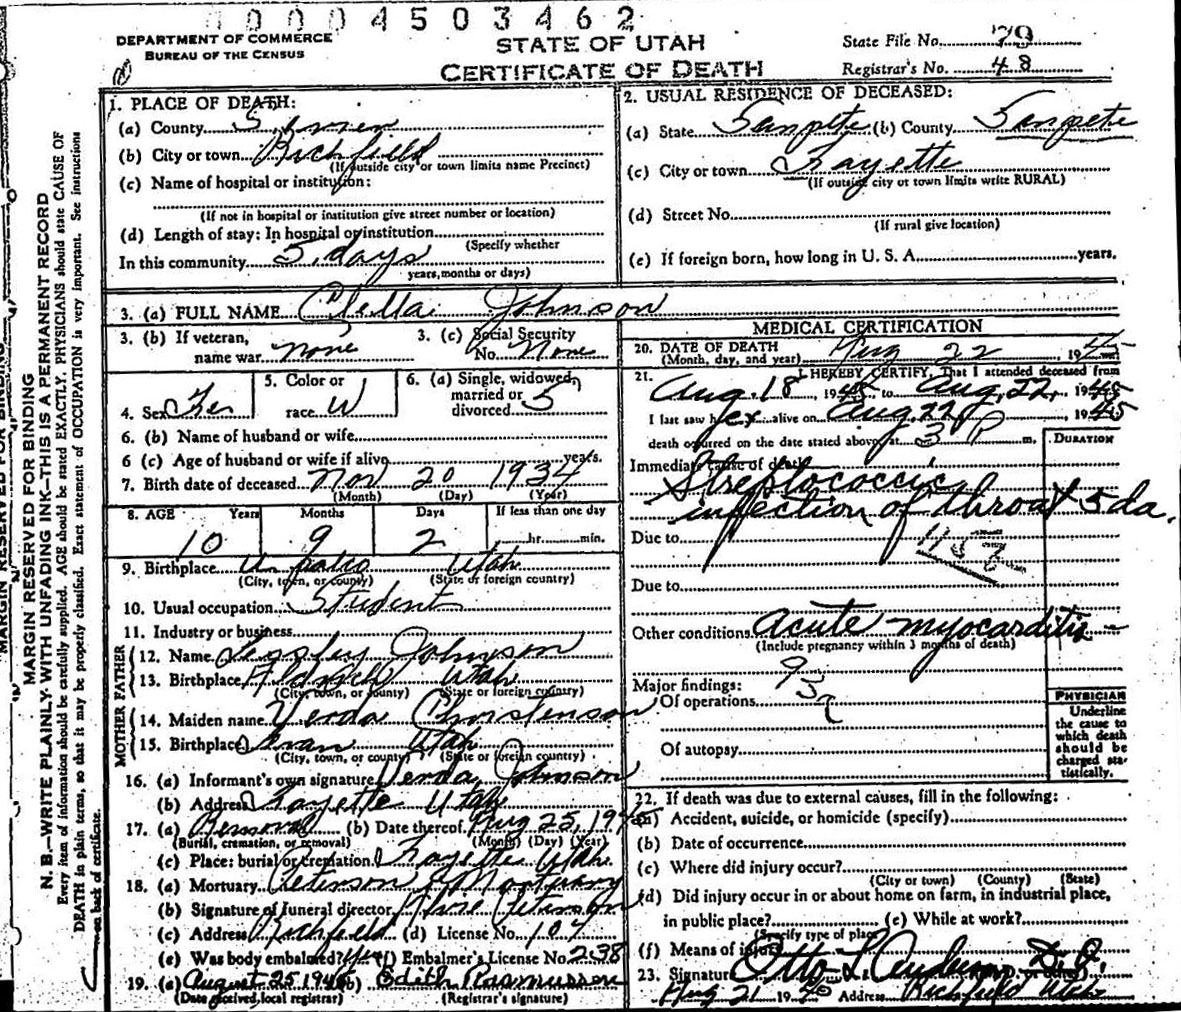 00004503462
DEPARTMENT OF COMMERCE
BUREAU OF THE CENSUS
STATE OF UTAH
CERTIFICATE OF DEATH
State File No. 79
Registrar's No. 48
MARGIN RESERVED FOR BINDING
N. B.—WRITE PLAINLY WITH UNFADING INK—THIS IS A PERMANENT RECORD
Every item of information should be carefully supplied. AGE should be stated EXACTLY. PHYSICIANS should state CAUSE OF
DEATH in plain terms, so that it may be properly classified. Exact statement of OCCUPATION is very important. See instructions
on back of certificate.
1. PLACE OF DEATH:
(a) County Sevier
(b) City or town Richfield
(If outside city or town limits name Precinct)
(c) Name of hospital or institution:
(If not in hospital or institution give street number or location)
(d) Length of stay: In hospital or institution
(Specify whether
In this community 5 days
years, months or days)
2. USUAL RESIDENCE OF DECEASED:
(a) State Sanpete (b) County Sanpete
(c) City or town Fayette
(If outside city or town limits write RURAL)
(d) Street No.
(If rural give location)
(e) If foreign born, how long in U. S. A. years.
3. (a) FULL NAME Clella Johnson
3. (b) If veteran,
name war none
3. (c) Social Security
No. None
4. Sex Fe
5. Color or
race W
6. (a) Single, widowed,
married or
divorced S
6. (b) Name of husband or wife
6 (c) Age of husband or wife if alive years.
7. Birth date of deceased Nov 20 1934
(Month) (Day) (Year)
8. AGE Years Months Days If less than one day
10 9 2 hr. min.
9. Birthplace Utah
(City, town, or county) (State or foreign country)
10. Usual occupation Student
11. Industry or business
FATHER
12. Name Johnson
13. Birthplace Utah
(City, town, or county) (State or foreign country)
MOTHER
14. Maiden name Verda Christenson
15. Birthplace Utah
(City, town, or county) (State or foreign country)
16. (a) Informant's own signature Verda Johnson
(b) Address Fayette Utah
17. (a) Removal (b) Date thereof Aug 25 1945
(Burial, cremation, or removal) (Month) (Day) (Year)
(c) Place: burial or cremation Fayette Utah
18. (a) Mortuary Peterson Mortuary
(b) Signature of funeral director Peterson
(c) Address Richfield (d) License No. 104
(e) Was body embalmed? Yes (f) Embalmer's License No. 238
19. (a) August 25 1945 (b) Edith Rasmussen
(Date received, local registrar) (Registrar's signature)
MEDICAL CERTIFICATION
20. DATE OF DEATH
(Month, day, and year) Aug 22, 1945
21. I HEREBY CERTIFY, That I attended deceased from
Aug. 18, 1945, to Aug. 22, 1945
I last saw her alive on Aug 22, 1945
death occurred on the date stated above, at 3 P m.
DURATION
Immediate cause of death
Streptococcic
infection of throat 5 da.
Due to
Due to
Other conditions Acute myocarditis
(Include pregnancy within 3 months of death)
Major findings:
Of operations
Of autopsy
PHYSICIAN
Underline
the cause to
which death
should be
charged sta-
tistically.
22. If death was due to external causes, fill in the following:
(a) Accident, suicide, or homicide (specify)
(b) Date of occurrence
(c) Where did injury occur?
(City or town) (County) (State)
(d) Did injury occur in or about home on farm, in industrial place,
in public place? (e) While at work?
(Specify type of place)
(f) Means of injury
23. Signature Otto L Anderson D.O.
Aug 21 1945 Address Richfield Utah